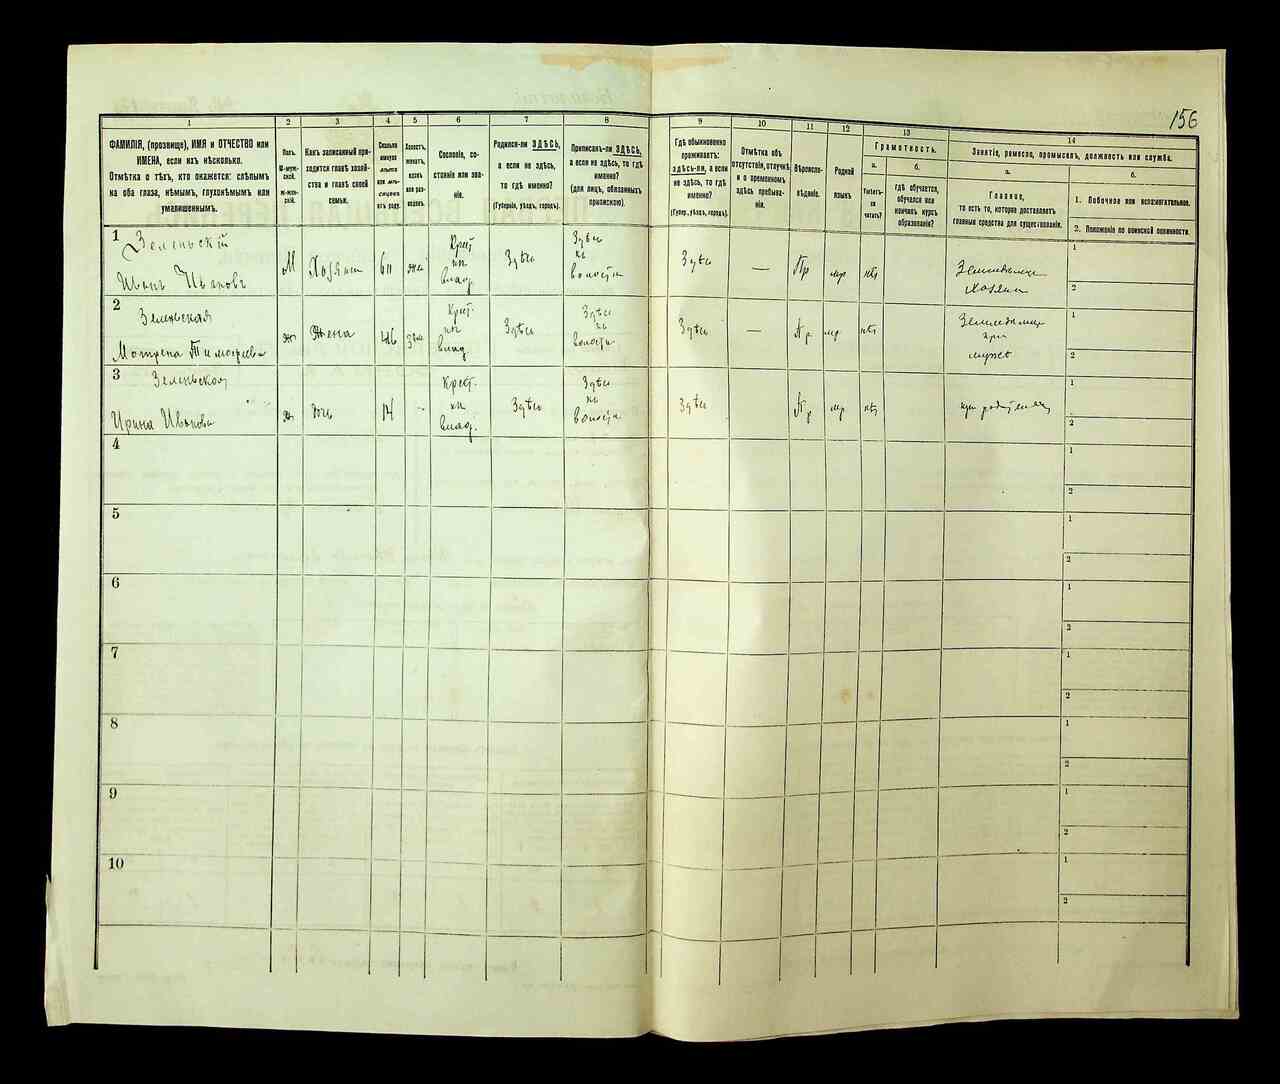 156
1
2
3
4
5
6
7
8
9
10
11
12
13
14
ФАМИЛІЯ, (прозвище), ИМЯ и ОТЧЕСТВО или
ИМЕНА, если ихъ нѣсколько.
Отмѣтка о тѣхъ, кто окажется: слѣпымъ
на оба глаза, нѣмымъ, глухонѣмымъ или
умалишеннымъ.
Полъ.
М-муж-
ской.
Ж-жен-
скій.
Какъ записанный при-
ходится главѣ хозяй-
ства и главѣ своей
семьи.
Сколько
минуло
лѣтъ
или мѣ-
сяцевъ
отъ роду.
Холостъ,
женатъ,
вдовъ
или раз-
веденъ.
Сословіе, со-
стояніе или зва-
ніе.
Родился-ли ЗДѢСЬ,
а если не здѣсь,
то гдѣ именно?
(Губернія, уѣздъ, городъ).
Приписанъ-ли ЗДѢСЬ,
а если не здѣсь, то гдѣ
именно?
(для лицъ, обязанныхъ
припискою).
Гдѣ обыкновенно
проживаетъ:
здѣсь-ли, а если
не здѣсь, то гдѣ
именно?
(Губер., уѣздъ, городъ).
Отмѣтка объ
отсутствіи, отлучкѣ
и о временномъ
здѣсь пребыва-
ніи.
Вѣроиспо-
вѣданіе.
Родной
языкъ.
Грамотность.
а.
б.
Умѣетъ-
ли
читать?
гдѣ обучается,
обучался или
кончилъ курсъ
образованія?
Занятіе, ремесло, промыселъ, должность или служба.
а.
б.
Главное,
то есть то, которое доставляетъ
главныя средства для существованія.
1. Побочное или вспомогательное.
2. Положеніе по воинской повинности.
1
Зеленьскій
Иванъ Ивановъ
М
Хозяинъ
60
жен
Крест
изъ
влад.
Здѣсь
Здѣсь
въ
волости
Здѣсь
—
Пр
мр
нѣтъ
Земледѣлецъ
Хозяинъ
1
2
2
Зеленьская
Мотрена Тимофеева
ж
Жена
46
зам
Крест.
изъ
влад.
Здѣсь
Здѣсь
въ
волости
Здѣсь
—
Пр
мр
нѣтъ
Земледѣлецъ
при
мужѣ
1
2
3
Зеленьская
Ирина Иванова
ж
дочь
14
-
Крест.
изъ
влад.
Здѣсь
Здѣсь
въ
волости
Здѣсь
Пр
мр
нѣтъ
при родителяхъ
1
2
4
1
2
5
1
2
6
1
2
7
1
2
8
1
2
9
1
2
10
1
2